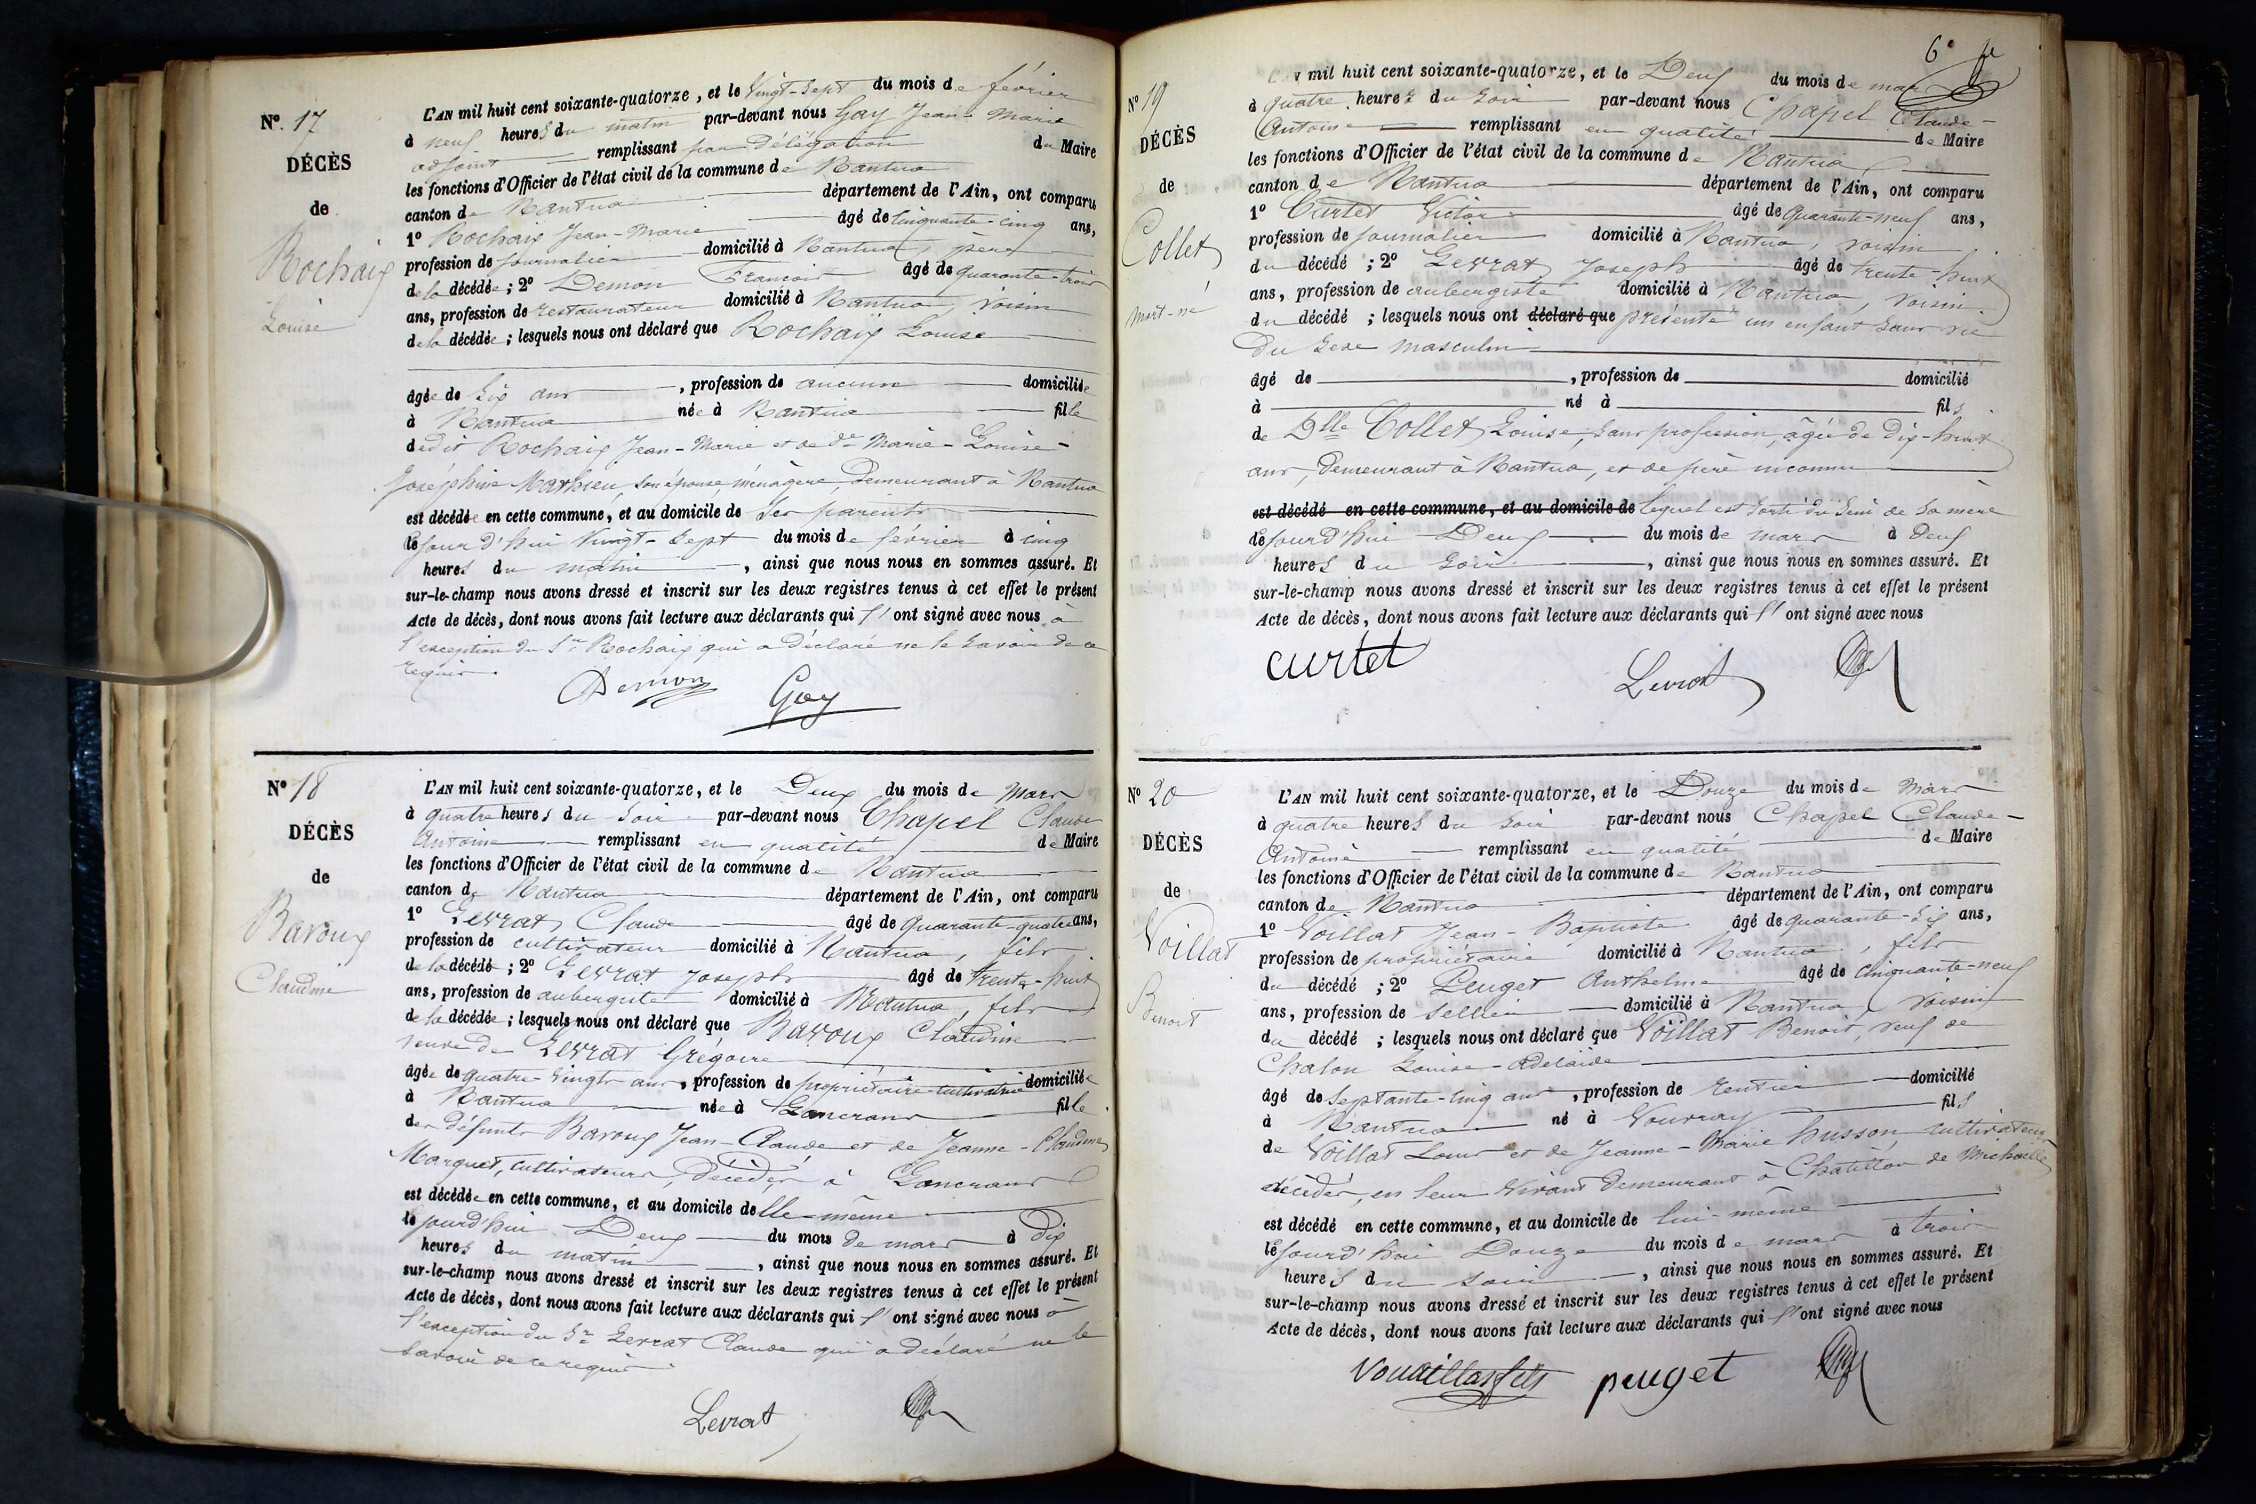 Nº 17
DÉCÈS
de
Rochaix
Louise
L'AN mil huit cent soixante-quatorze, et le Vingt-Sept du mois de février
à neuf heures du matin par-devant nous Gay Jean-Marie
adjoint remplissant par Délégation du Maire
les fonctions d'Officier de l'état civil de la commune de Nantua
canton de Nantua département de l'Ain, ont comparu
1º Rochaix Jean-Marie âgé de Cinquante-cinq ans,
profession de journalier domicilié à Nantua, père
de la décédée ; 2º Demon François âgé de quarante-trois
ans, profession de restaurateur domicilié à Nantua, voisin
de la décédée ; lesquels nous ont déclaré que Rochaix Louise
âgée de Six ans, profession de aucune domiciliée
à Nantua née à Nantua fille
dedit Rochaix Jean-Marie et de de Marie-Louise-
Joséphine Mathieu, son épouse, ménagère, Demeurant à Nantua
est décédée en cette commune, et au domicile de ses parents
lejourd'hui Vingt-Sept du mois de février à cinq
heures du matin, ainsi que nous nous en sommes assuré. Et
sur-le-champ nous avons dressé et inscrit sur les deux registres tenus à cet effet le présent
Acte de décès, dont nous avons fait lecture aux déclarants qui l'ont signé avec nous à
l'exception du Sr Rochaix qui a déclaré ne le savoir de ce
requis.
Demon Gay
Nº 18
DÉCÈS
de
Baroux
Claudine
L'AN mil huit cent soixante-quatorze, et le Deux du mois de Mars
à quatre heures du soir par-devant nous Chapel Claude
Antoine remplissant en qualité de Maire
les fonctions d'Officier de l'état civil de la commune de Nantua
canton de Nantua département de l'Ain, ont comparu
1º Levrat Claude âgé de Quarante-quatre ans,
profession de cultivateur domicilié à Nantua, fils
de la décédé ; 2º Levrat Joseph âgé de trente-huit
ans, profession de aubergiste domicilié à Nantua, fils
de la décédée ; lesquels nous ont déclaré que Baroux Claudine
veuve de Levrat Grégoire
âgée de quatre-vingts ans, profession de propriétaire-cultivatrice domiciliée
à Nantua née à Lancrans fille
des défunts Baroux Jean-Claude et de Jeanne-Claudine
Marquet, cultivateurs, Décédés à Lancrans
est décédée en cette commune, et au domicile delle-même
lejourd'hui Deux du mois de mars à Dix
heures du matin, ainsi que nous nous en sommes assuré. Et
sur-le-champ nous avons dressé et inscrit sur les deux registres tenus à cet effet le présent
Acte de décès, dont nous avons fait lecture aux déclarants qui l'ont signé avec nous à
l'exception du Sr Levrat Claude qui a déclaré ne le
savoir de ce requis.
Levrat
6e
Nº 19
DÉCÈS
de
Collet
mort-né
L'AN mil huit cent soixante-quatorze, et le Deux du mois de mars
à quatre heures du Soir par-devant nous Chapel Claude-
Antoine remplissant en qualité de Maire
les fonctions d'Officier de l'état civil de la commune de Nantua
canton de Nantua département de l'Ain, ont comparu
1º Curtet Victor âgé de Quarante-neuf ans,
profession de journalier domicilié à Nantua, voisin
du décédé ; 2º Levrat Joseph âgé de trente-huit
ans, profession de aubergiste domicilié à Nantua, voisin
du décédé ; lesquels nous ont déclaré que présenté un enfant sans vie
du Sexe masculin
âgé de, profession de domicilié
à né à fils
de Dlle Collet Louise, sans profession, âgée de Dix-huit
ans, Demeurant à Nantua, et de père inconnu
est décédé en cette commune, et au domicile de lequel est sorti du Sein de sa mère
lejourd'hui Deux du mois de mars à Deux
heures du Soir, ainsi que nous nous en sommes assuré. Et
sur-le-champ nous avons dressé et inscrit sur les deux registres tenus à cet effet le présent
Acte de décès, dont nous avons fait lecture aux déclarants qui l'ont signé avec nous
curtet Levrat
Nº 20
DÉCÈS
de
Voillat
Benoit
L'AN mil huit cent soixante-quatorze, et le Douze du mois de Mars
à quatre heures du Soir par-devant nous Chapel Claude-
Antoine remplissant en qualité de Maire
les fonctions d'Officier de l'état civil de la commune de Nantua
canton de Nantua département de l'Ain, ont comparu
1º Voillat Jean-Baptiste âgé de quarante-Six ans,
profession de propriétaire domicilié à Nantua, fils
du décédé ; 2º Peuget Anthelme âgé de cinquante-neuf
ans, profession de Sellier domicilié à Nantua, Voisin
du décédé ; lesquels nous ont déclaré que Voillat Benoit, veuf de
Chalon Louise-Adelaïde
âgé de Septante-cinq ans, profession de rentier domicilié
à Nantua né à Vouvray fils
de Voillat Louis et de Jeanne-Marie husson, cultivateurs
décédés, en leur Vivant Demeurant à Châtillon de Michaille
est décédé en cette commune, et au domicile de lui-même
lejourd'hui Douze du mois de mars à trois
heures du soir, ainsi que nous nous en sommes assuré. Et
sur-le-champ nous avons dressé et inscrit sur les deux registres tenus à cet effet le présent
Acte de décès, dont nous avons fait lecture aux déclarants qui l'ont signé avec nous
Vouaillat fils peuget